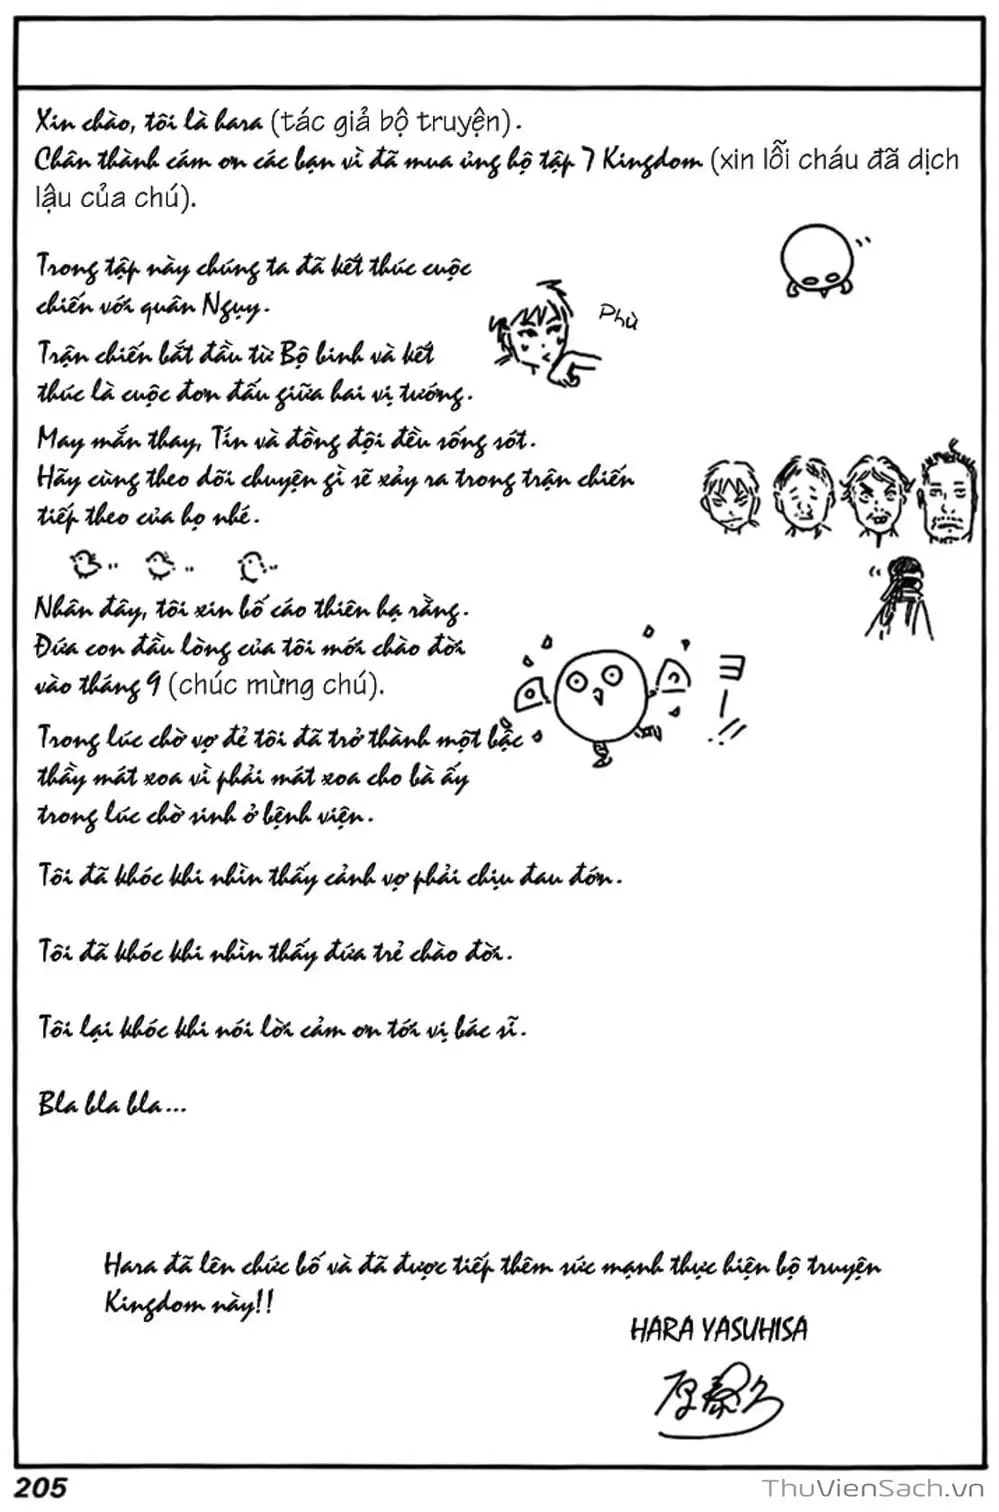 Xin chào, tôi là hara (tác giả bộ truyện).
Chân thành cám ơn các bạn vì đã mua ủng hộ tập 7 Kingdom (xin lỗi cháu đã dịch
lậu của chú).
Trong tập này chúng ta đã kết thúc cuộc
chiến với quân Ngụy.
Phù
Trận chiến bắt đầu từ Bộ binh và kết
thúc là cuộc đơn đấu giữa hai vị tướng.
May mắn thay, Tín và đồng đội đều sống sót.
Hãy cùng theo dõi chuyện gì sẽ xảy ra trong trận chiến
tiếp theo của họ nhé.
Nhân đây, tôi xin bố cáo thiên hạ rằng.
Đứa con đầu lòng của tôi mới chào đời
vào tháng 9 (chúc mừng chú).
ヨー!!
Trong lúc chờ vợ đẻ tôi đã trở thành một bậc
thầy mát xoa vì phải mát xoa cho bà ấy
trong lúc chờ sinh ở bệnh viện.
Tôi đã khóc khi nhìn thấy cảnh vợ phải chịu đau đớn.
Tôi đã khóc khi nhìn thấy đứa trẻ chào đời.
Tôi lại khóc khi nói lời cảm ơn tới vị bác sĩ.
Bla bla bla...
Hara đã lên chức bố và đã được tiếp thêm sức mạnh thực hiện bộ truyện
Kingdom này!!
HARA YASUHISA
原泰久
205
ThuVienSach.vn